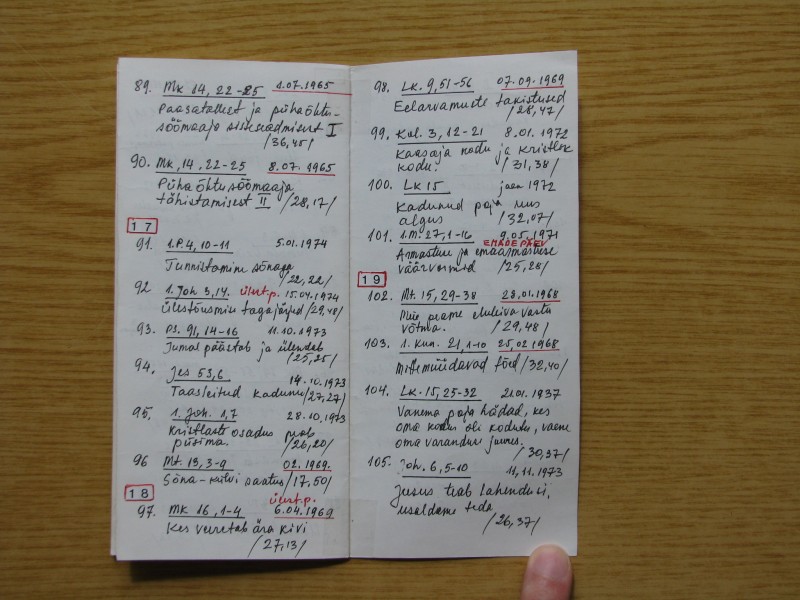 89. Mk 14, 22-25 1.07.1965
Paasatallest ja pühaõhtu-
söömaaja sisseseadmisest I
/36,45/
90. Mk, 14, 22-25 8.07.1965
Püha õhtusöömaaja
tähistamisest II /28,17/
17
91. 1.P. 4, 10-11 5.01.1974
Tunnistamine sõnaga
/22,22/
92 1. Joh 3,14. ülest.p. 15.04.1974
ülestõusmise tagajärjed /29,48/
93. Ps. 91, 14-16 11.10.1973
Jumal päästab ja ülendab
/25,25/
94. Jes 53,6 14.10.1973
Taasleitud kadunu /27,27/
95. 1. Joh. 1,7 28.10.1973
Kristlaste osadus peab
püsima. /26,20/
96 Mt. 13, 3-9 02.1969.
Sõna-külvi saatus /17,50/
18
ülest.p.
97. Mk 16, 1-4 6.04.1969
Kes veeretab ära kivi
/27,13/
98. Lk. 9, 51-56 07.09.1969
Eelarvamuste takistused
/28,47/
99. Kol. 3, 12-21 8.01.1972
Kaasaja kodu ja kristlik
kodu. /31,38/
100. Lk 15 jaan 1972
Kadunud poja uus
algus /32,07/
101. 1.M. 27, 1-16 9.05.1971
EMADEPÄEV
Armastuse ja emaarmastuse
väärvormid /25,28/
19
102. Mt. 15, 29-38 28.01.1968
Me peame eluleiva vastu
võtma. /29,48/
103. 1. Kun. 21, 1-10 25,02.1968
Mittemüüdavad tõed /32,40/
104. Lk. 15, 25-32 21.01.1937
Vanema poja hädad, kes
oma kodus oli kodutu, vaene
oma varanduse juures.
/30,37/
105. Joh. 6, 5-10 11,11.1973
Jeesus teab lahendusi,
usaldame teda
/26,37/